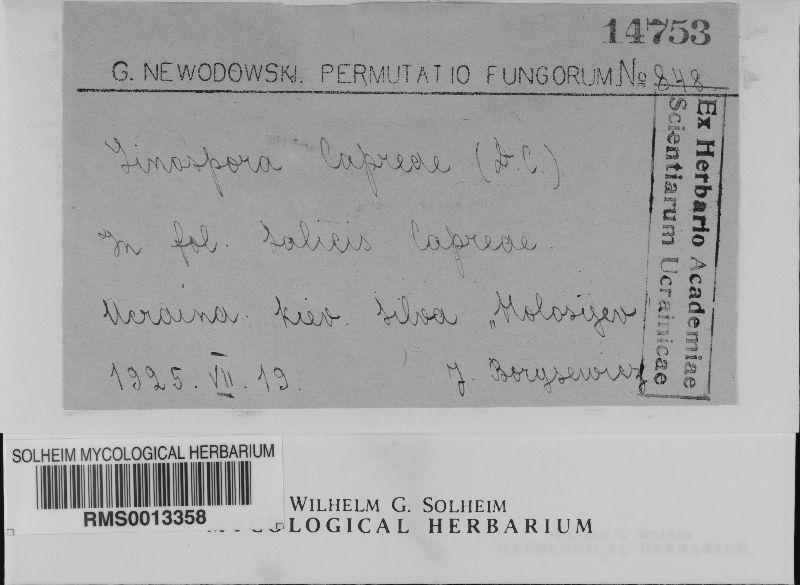 14753
G. NEWODOWSKI. PERMUTATIO FUNGORUM. № 848
Linospora Capreae (D.C.)
In fol. Salicis Capreae.
Ucraina. Kiev. Silva „Holosijev
1925. VII. 19. J. Borysewicz
Ex Herbario Academiae
Scientiarum Ucrainicae
SOLHEIM MYCOLOGICAL HERBARIUM
RMS0013358
WILHELM G. SOLHEIM
MYCOLOGICAL HERBARIUM